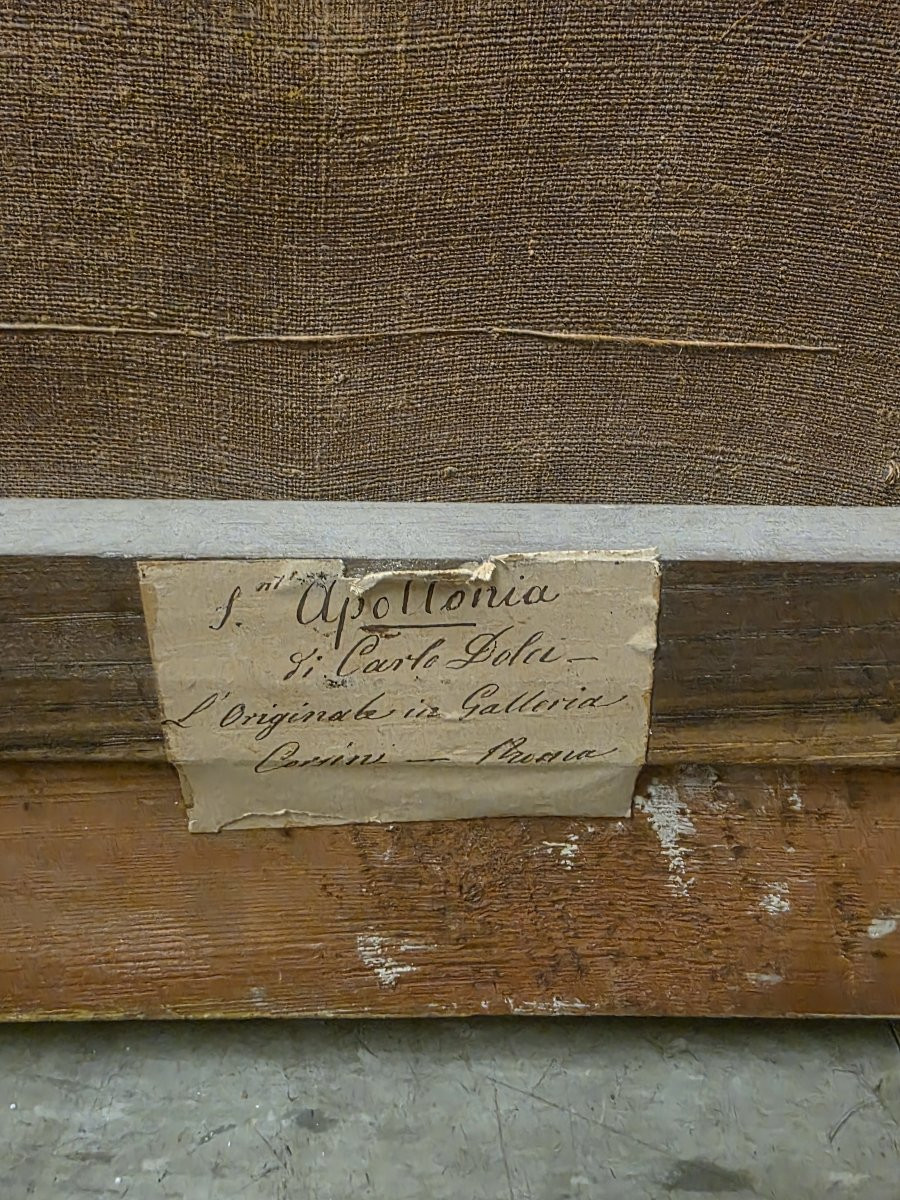 S.nta Apollonia
di Carlo Dolci —
L'Originale in Galleria
Corsini — Roma